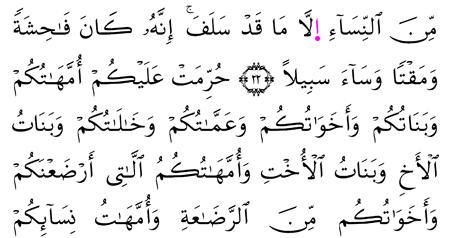 مِّنَ ٱلنِّسَآءِ إِلَّا مَا قَدْ سَلَفَۚ إِنَّهُۥ كَانَ فَٰحِشَةً
وَمَقْتًا وَسَآءَ سَبِيلًا ﴿٢٢﴾ حُرِّمَتْ عَلَيْكُمْ أُمَّهَٰتُكُمْ
وَبَنَاتُكُمْ وَأَخَوَٰتُكُمْ وَعَمَّٰتُكُمْ وَخَٰلَٰتُكُمْ وَبَنَاتُ
ٱلْأَخِ وَبَنَاتُ ٱلْأُخْتِ وَأُمَّهَٰتُكُمُ ٱلَّٰتِىٓ أَرْضَعْنَكُمْ
وَأَخَوَٰتُكُم مِّنَ ٱلرَّضَٰعَةِ وَأُمَّهَٰتُ نِسَآئِكُمْ